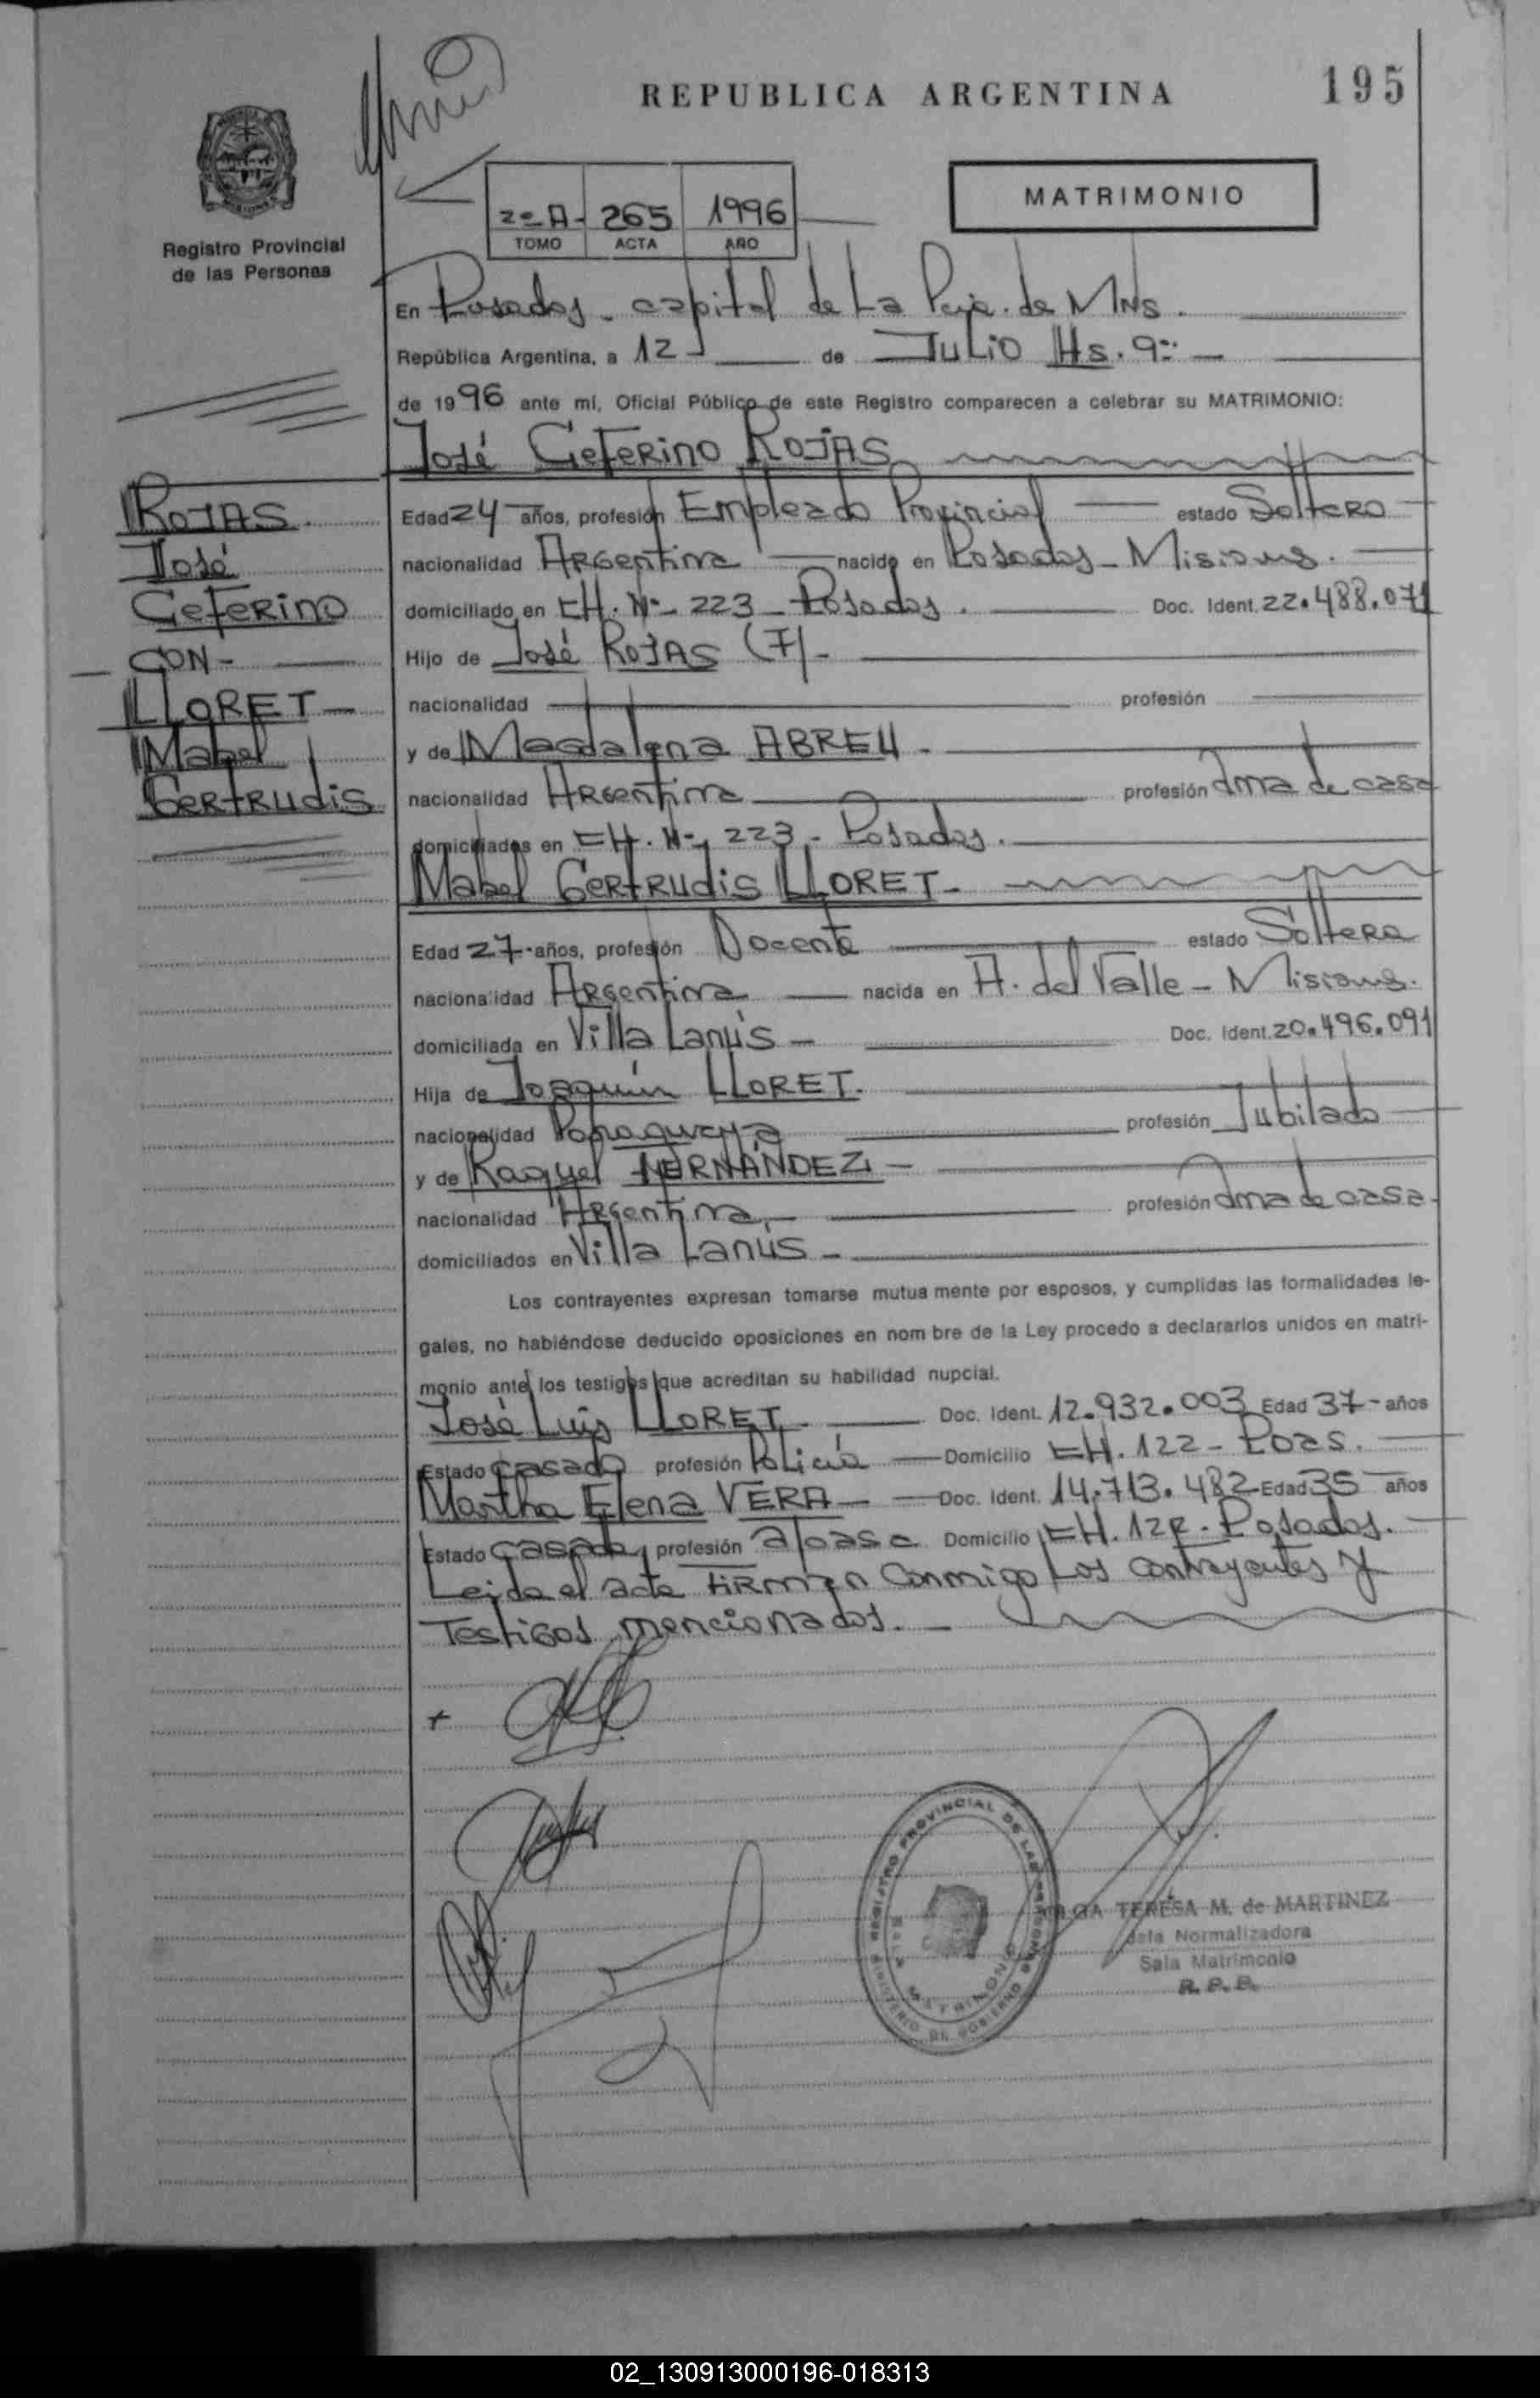 REPUBLICA ARGENTINA
195
MATRIMONIO
2º A- 265 1996
TOMO ACTA AÑO
Registro Provincial
de las Personas
En Posadas - capital de La Pcia. de Mns.
República Argentina, a 12 de Julio Hs. 9:-
de 1996 ante mí, Oficial Público de este Registro comparecen a celebrar su MATRIMONIO:
José Ceferino ROJAS
ROJAS.
José
Ceferino
CON-
LLORET-
Mabel
Gertrudis
Edad 24 años, profesión Empleado Provincial estado Soltero
nacionalidad Argentina nacido en Posadas - Misiones.
domiciliado en CH. Nº- 223 - Posadas. Doc. Ident. 22.488.071
Hijo de José ROJAS (F)-
nacionalidad profesión
y de Magdalena ABREU.
nacionalidad Argentina profesión Ama de casa
domiciliados en CH. Nº- 223 - Posadas.
Mabel Gertrudis LLORET-
Edad 27- años, profesión Docente estado Soltera
nacionalidad Argentina nacida en A. del Valle - Misiones.
domiciliada en Villa Lanús - Doc. Ident. 20.496.091
Hija de Joaquín LLORET.
nacionalidad Paraguaya profesión Jubilado
y de Raquel HERNÁNDEZ -
nacionalidad Argentina - profesión Ama de casa-
domiciliados en Villa Lanús -
Los contrayentes expresan tomarse mutua mente por esposos, y cumplidas las formalidades le-
gales, no habiéndose deducido oposiciones en nom bre de la Ley procedo a declararlos unidos en matri-
monio ante los testigos que acreditan su habilidad nupcial.
José Luis LLORET - Doc. Ident. 12.932.003 Edad 37- años
Estado Casado profesión Policía Domicilio CH. 122 - Pdas.
Martha Elena VERA - Doc. Ident. 14.713.482 Edad 35 años
Estado Casada profesión a/casa Domicilio CH. 122 - Posadas.
Leida el acta Firman Conmigo Los contrayentes y
Testigos mencionados. -
REGISTRO PROVINCIAL DE LAS PERSONAS
MINISTERIO DE GOBIERNO
MATRIMONIO
TERESA M. de MARTINEZ
Jefa Normalizadora
Sala Matrimonio
R. P. P.
02_130913000196-018313